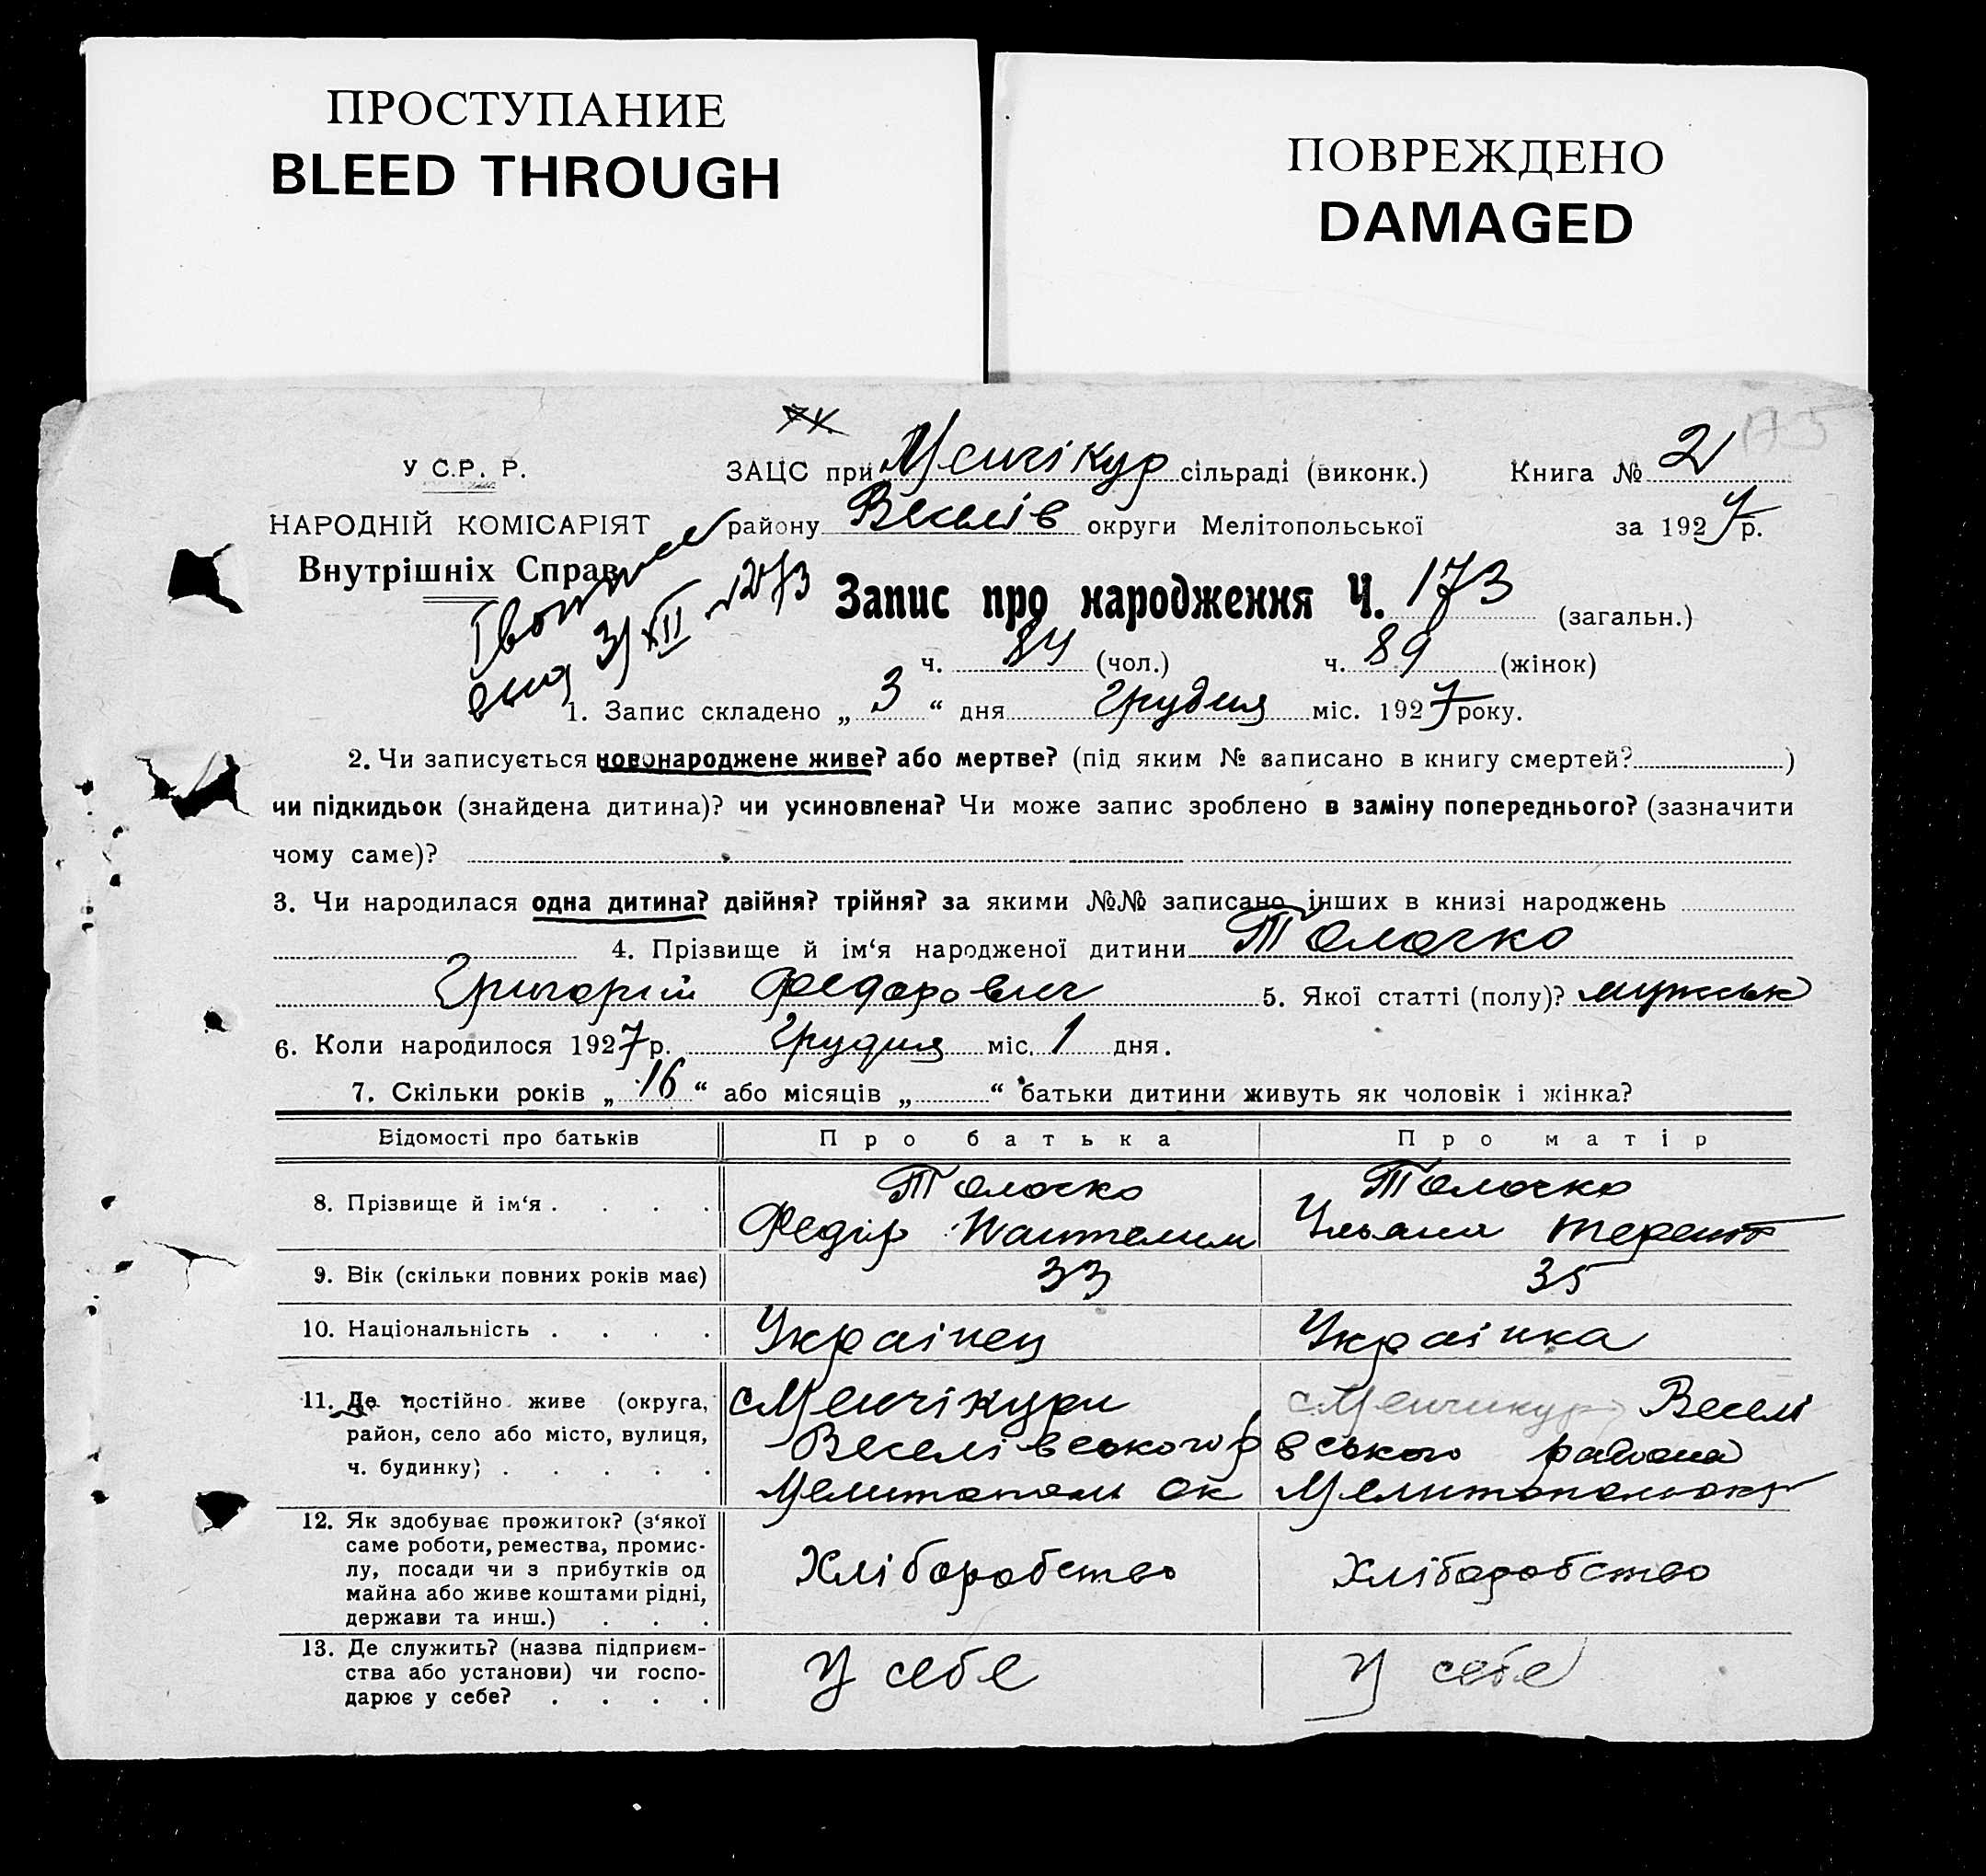 ПРОСТУПАНИЕ
BLEED THROUGH
ПОВРЕЖДЕНО
DAMAGED
У С.Р.Р. ЗАЦС при Менчікур сільраді (виконк.) Книга № 2 173
НАРОДНІЙ КОМІСАРІЯТ району Веселів округи Мелітопольської за 1927 р.
Внутрішніх Справ
Запис про народження Ч. 173 (загальн.)
3/XII
ч. 84 (чол.) ч. 89 (жінок)
1. Запис складено „ 3 “ дня Грудня міс. 1927 року.
2. Чи записується новонароджене живе? або мертве? (під яким № записано в книгу смертей? )
чи підкидьок (знайдена дитина)? чи усиновлена? Чи може запис зроблено в заміну попереднього? (зазначити
чому саме)?
3. Чи народилася одна дитина? двійня? трійня? за якими №№ записано інших в книзі народжень
4. Прізвище й ім‘я народженої дитини Толочко
Григорій Федорович 5. Якої статті (полу)? мужськ
6. Коли народилося 1927 р. Грудня міс. 1 дня.
7. Скільки років „ 16 “ або місяців „ “ батьки дитини живуть як чоловік і жінка?
Відомості про батьків Про батька Про матір
8. Прізвище й ім‘я . . . . Толочко Толочко
Федір Пантелим Ульяна Терент
9. Вік (скільки повних років має) 33 35
10. Національність . . . . Українец Українка
11. Де постійно живе (округа, с Менчікури с Менчикур Веселі
район, село або місто, вулиця, Веселівського р вського района
ч. будинку) . . . . . Мелитополь Ок Мелитополь окр
12. Як здобуває прожиток? (з‘якої
саме роботи, ремества, промис-
лу, посади чи з прибутків од Хліборобство Хліборобство
майна або живе коштами рідні,
держави та инш.) . . .
13. Де служить? (назва підприєм-
ства або установи) чи госпо- У себе У себе
дарює у себе? . . . .